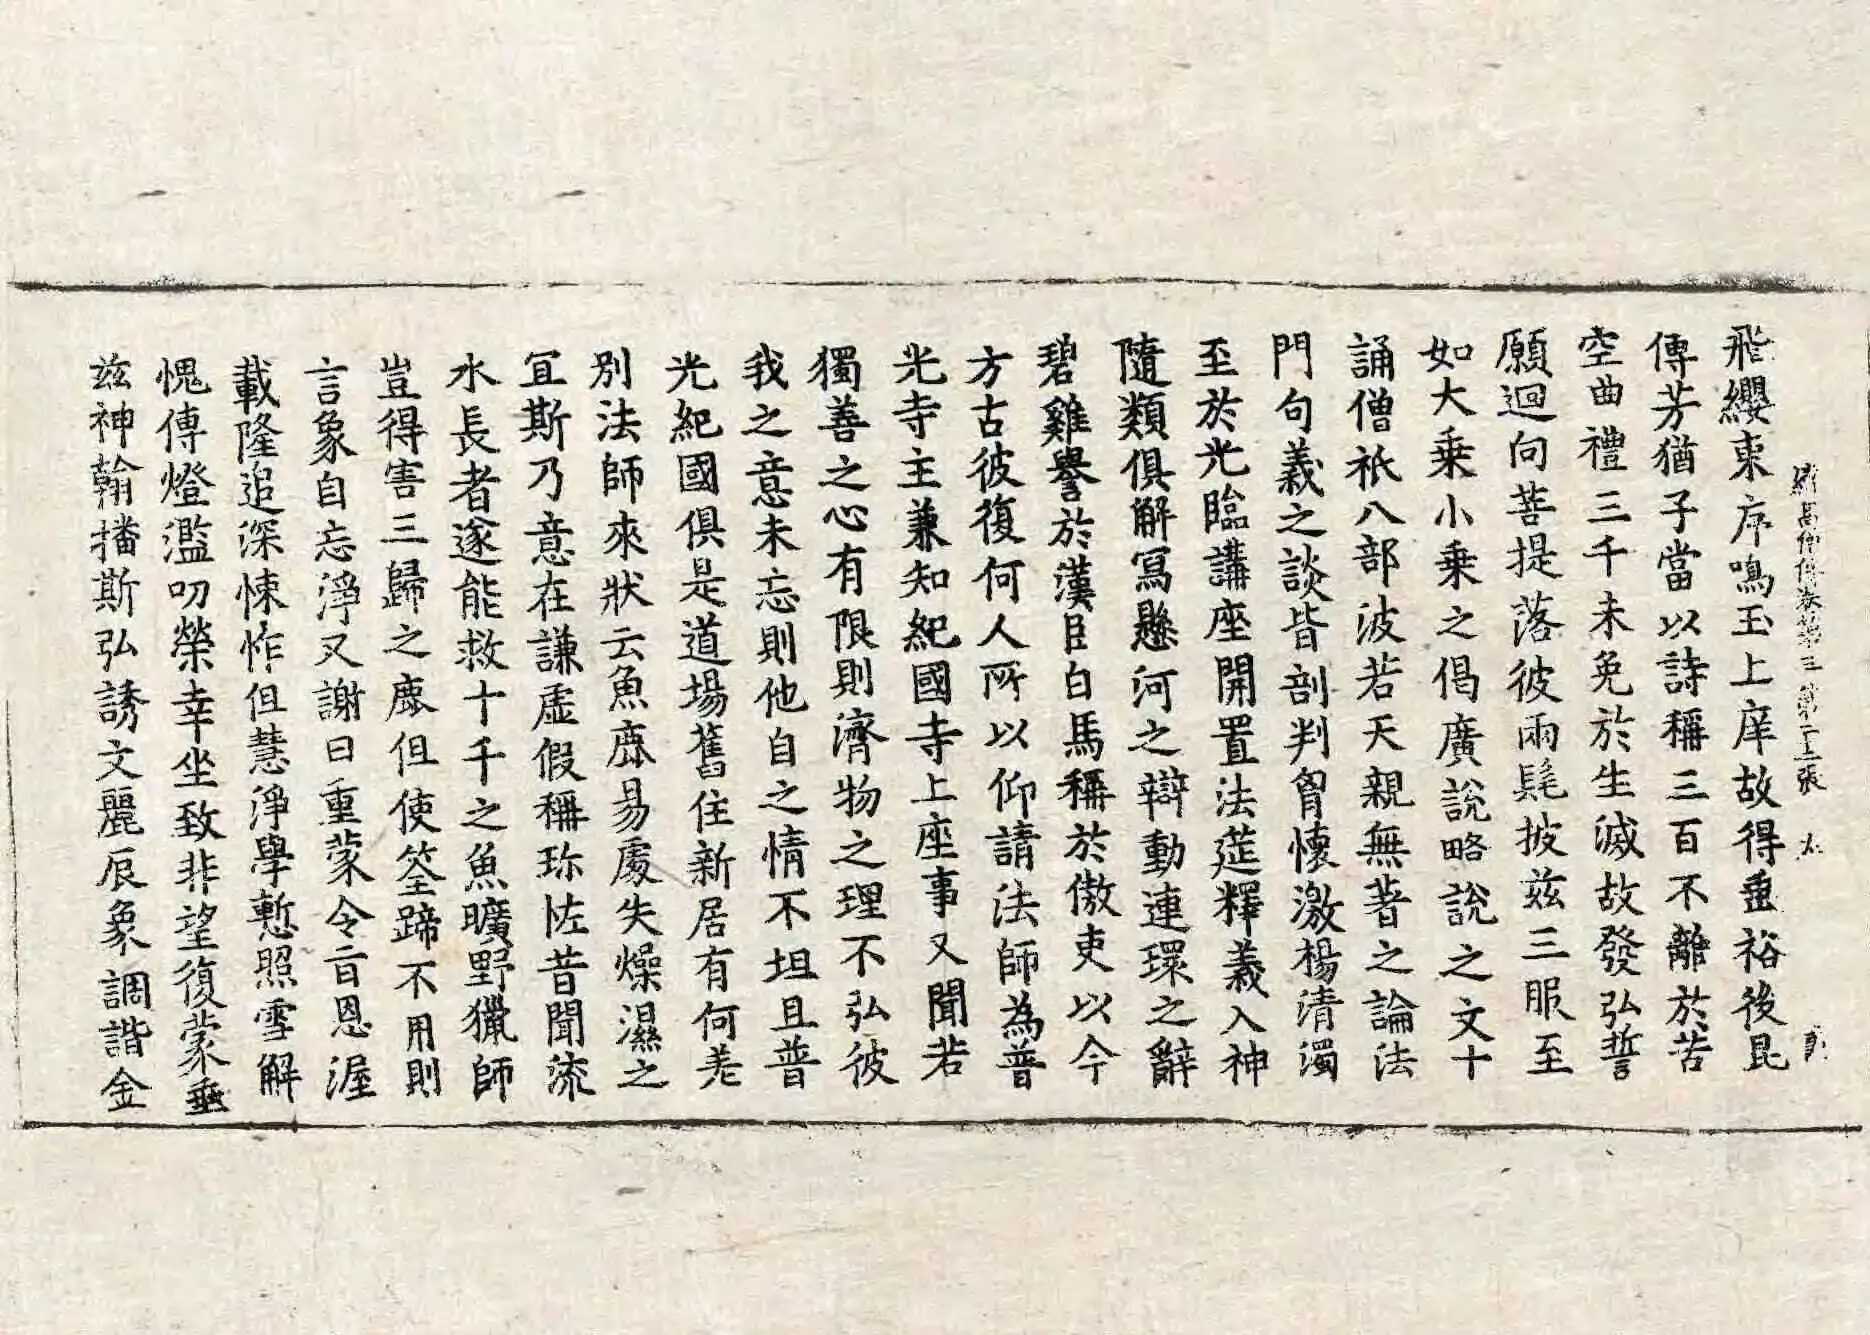 續高僧傳卷第三 第二十二張
飛纓東序鳴玉上庠故得垂裕後昆
傳芳猶子當以詩稱三百不離於苦
空曲禮三千未免於生滅故發弘誓
願迴向菩提落彼兩髦披玆三服至
如大乗小乗之偈廣說略說之文十
誦僧祇八部波若天親無著之論法
門句義之談皆剖判胷懷激楊清濁
至於光臨講座開置法筵釋義入神
隨類俱解寫懸河之辯動連環之辭
碧雞譽於漢臣白馬稱於傲吏以今
方古彼復何人所以仰請法師為普
光寺主兼知紀國寺上座事又聞若
獨善之心有限則濟物之理不弘彼
我之意未忘則他自之情不坦且普
光紀國俱是道場舊住新居有何差
別法師來狀云魚鹿易處失燥濕之
冝斯乃意在謙虛假稱珎恠昔聞流
水長者遂能救十千之魚曠野獵師
豈得害三歸之鹿但使筌蹄不用則
言象自忘淨又謝曰重蒙令旨恩渥
載隆追深悚怍但慧淨學慙照雪解
愧傳燈濫叨榮幸坐致非望復蒙垂
玆神翰播斯弘誘文麗辰象調諧金